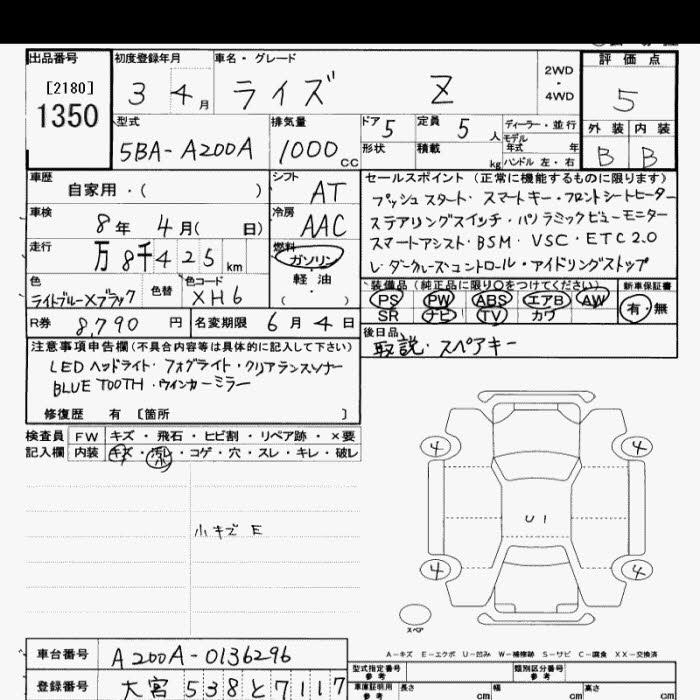 出品番号
[2180]
1350
初度登録年月
3 4月
車名・グレード
ライズ Z
2WD
・
4WD
評価点
5
外装 内装
B B
型式
5BA-A200A
排気量
1000cc
ドア 5
定員 5人
ディーラー・並行
モデル年式 年
形状
積載 kg
ハンドル 左・右
車歴
自家用・( )
シフト
AT
車検
8年 4月( 日)
冷房
AAC
走行
万8千425km
燃料
ガソリン
・
軽油
( )
色
ライトブルー×ブラック
色替
色コード
XH6
R券 8,790円
名変期限 6月4日
セールスポイント (正常に機能するものに限ります)
プッシュスタート・スマートキー・フロントシートヒーター
ステアリングスイッチ・パノラミックビューモニター
スマートアシスト・BSM・VSC・ETC2.0
レーダークルーズコントロール・アイドリングストップ
装備品(純正品に限り○をつけてください)
PS PW ABS エアB AW
SR ナビ TV カワ
新車保証書
有・無
後日品
取説・スペアキー
注意事項申告欄(不具合内容等は具体的に記入して下さい)
LEDヘッドライト・フォグライト・クリアランスソナー
BLUETOOTH・ウインカーミラー
修復歴 有 [箇所 ]
検査員 FW キズ・飛石・ヒビ割・リペア跡・×要
記入欄 内装 キズ・汚レ・コゲ・穴・スレ・キレ・破レ
小キズ E
4 4
U1
4 4
スペア
A−キズ E−エクボ U−凹み W−補修跡 S−サビ C−腐食 XX−交換済
車台番号 A200A-0136296
登録番号 大宮 538 と 7117
型式指定番号
参考
類別区分番号
参考
車庫証明用
参考
長さ cm
幅 cm
高さ cm